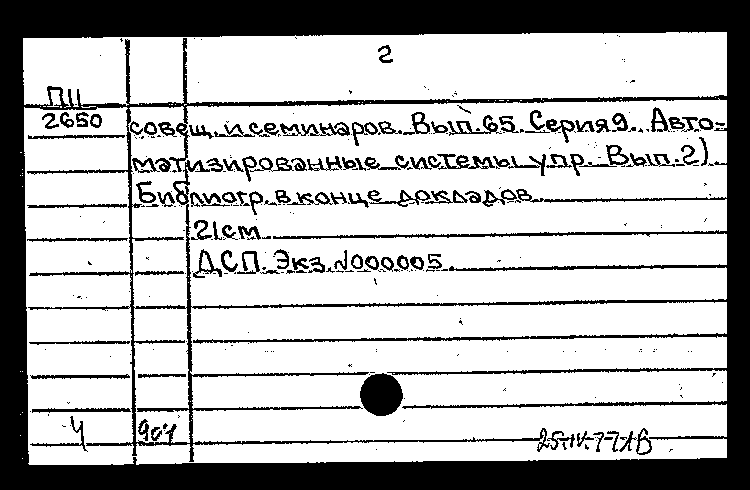 2
П11
2650
совещ. и семинаров. Вып. 65. Серия 9. Авто-
матизированные системы упр. Вып. 2).
Библиогр. в конце докладов
21 cm
ДСП. Экз. №000005.
Ч 904
25.IV.77